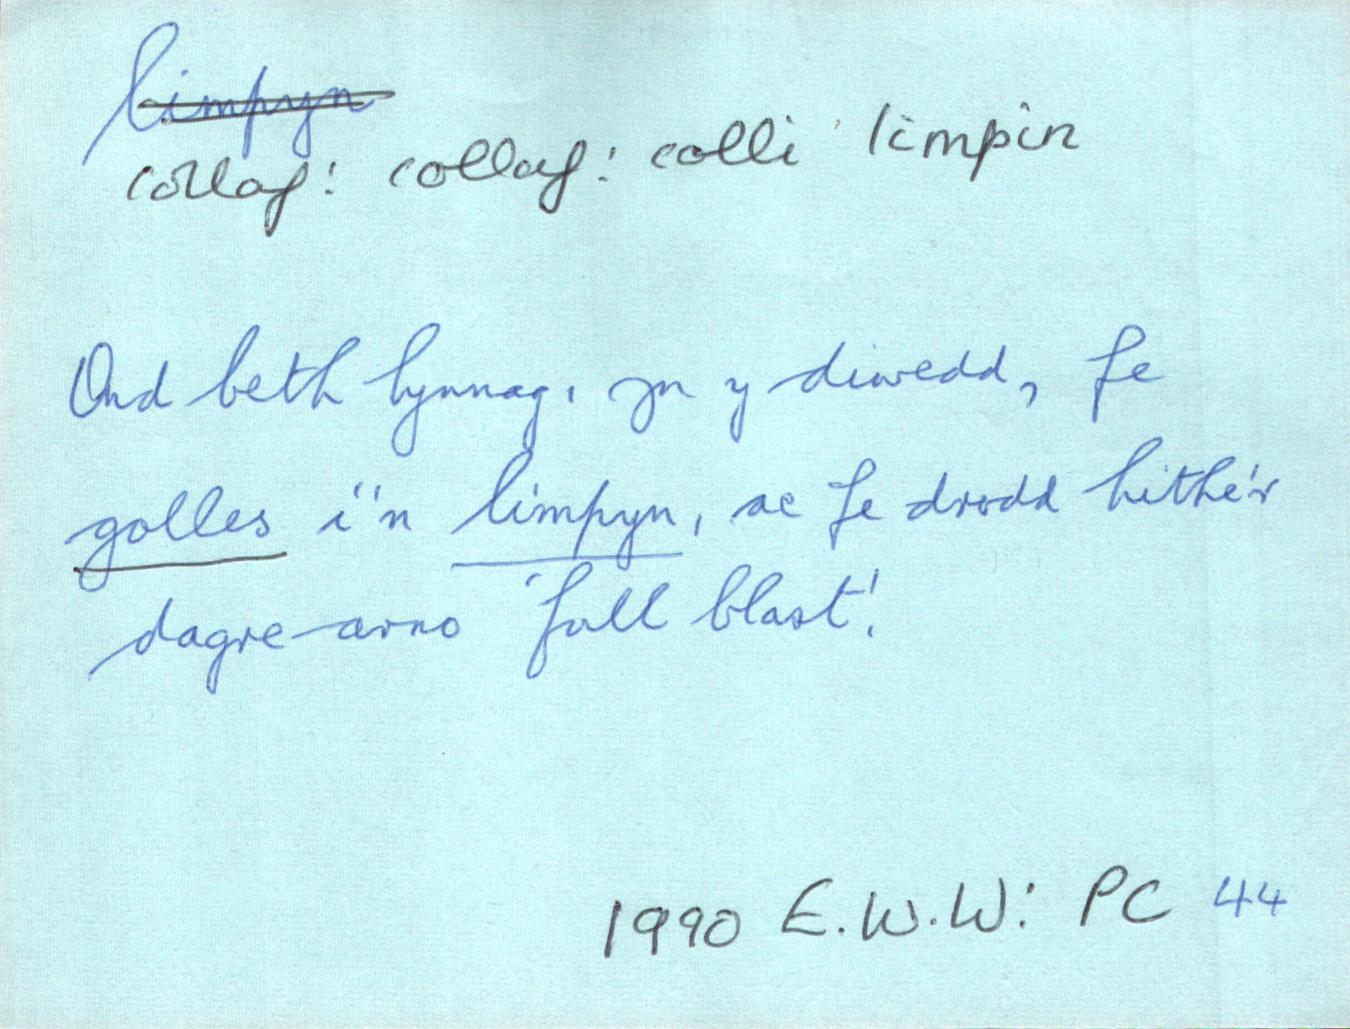 limpyn
collaf: collaf: colli limpin
Ond beth bynnag, yn y diwedd, fe
golles i'n limpyn, ac fe drodd hithe'r
dagre arno 'full blast'!
1990 E.W.W: PC 44